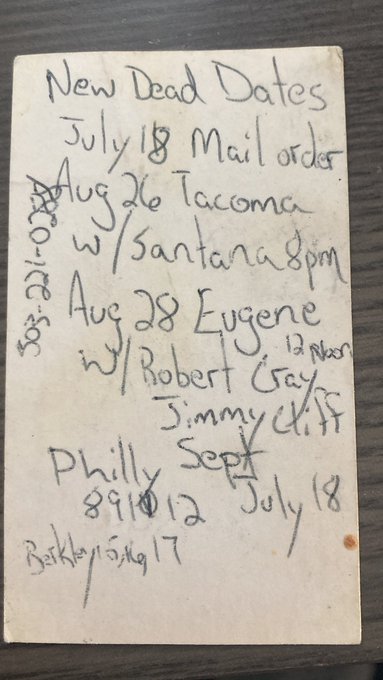 New Dead Dates
July 18 Mail order
Aug 26 Tacoma
w/Santana 8pm
Aug 28 Eugene
12 Noon
w/Robert Cray
Jimmy Cliff
Philly Sept
8 9 11 12 July 18
15, 16, 17
503-221-02